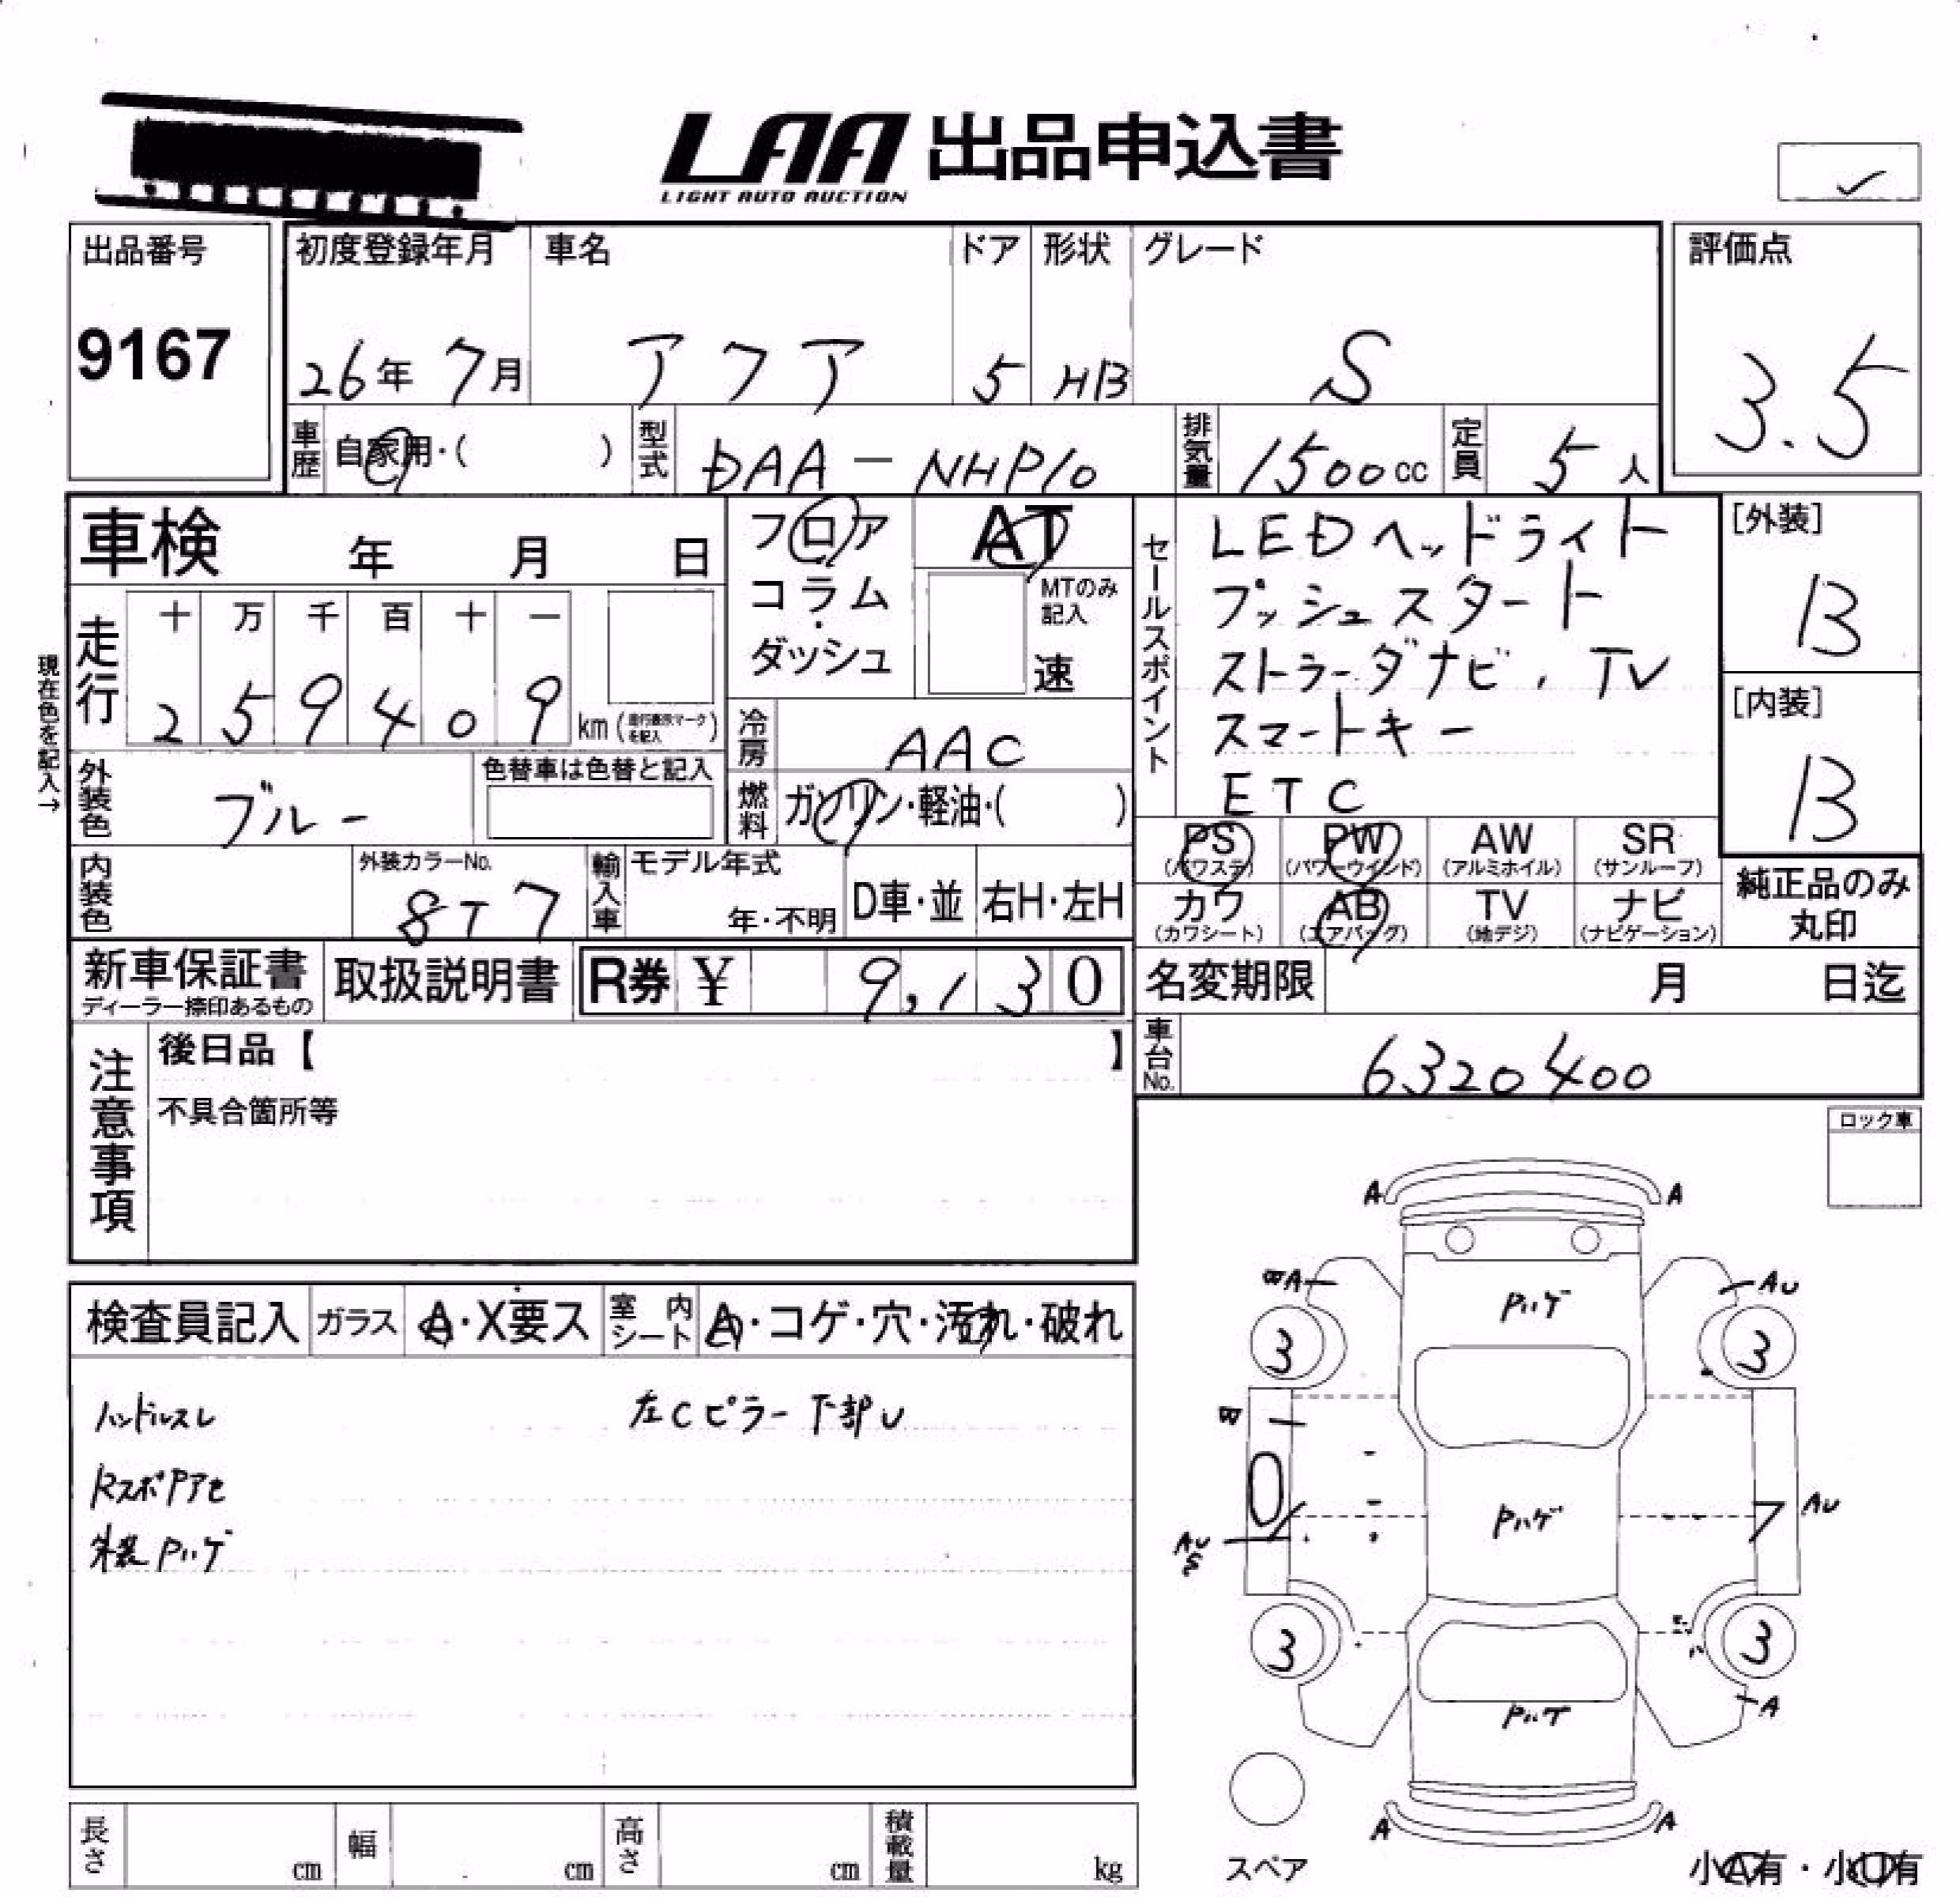 LAA 出品申込書
LIGHT AUTO AUCTION
出品番号
9167
初度登録年月
26年 7月
車名
アクア
ドア
5
形状
HB
グレード
S
評価点
3.5
車歴
自家用・( )
型式
DAA-NHP10
排気量
1500cc
定員
5人
車検 年 月 日
フロア
コラム
・
ダッシュ
AT
MTのみ
記入
速
セールスポイント
LEDヘッドライト
プッシュスタート
ストラーダナビ、TV
スマートキー
ETC
[外装]
B
[内装]
B
現在色を記入→
走行
十 万 千 百 十 一
2 5 9 4 0 9
km (走行表示マークを記入)
冷房
AAC
外装色
ブルー
色替車は色替と記入
燃料
ガソリン・軽油・( )
PS
(パワステ)
PW
(パワーウインド)
AW
(アルミホイル)
SR
(サンルーフ)
カワ
(カワシート)
AB
(エアバッグ)
TV
(地デジ)
ナビ
(ナビゲーション)
純正品のみ
丸印
内装色
外装カラーNo.
8T7
輸入車
モデル年式
年・不明
D車・並
右H・左H
新車保証書
ディーラー捺印あるもの
取扱説明書
R券 ¥ 9,130
名変期限 月 日迄
車台No.
6320400
注意事項
後日品【 】
不具合箇所等
ロック車
検査員記入
ガラス
A・X要ス
室内シート
A・コゲ・穴・汚れ・破れ
ハンドルスレ
左Cピラー下部U
RスポPアセ
外装Pハゲ
A A
BA AU
Pハゲ
3 3
B
Pハゲ
AU
AU
S
3 3
Pハゲ
A
A A
スペア
小A有・小U有
長さ cm
幅 cm
高さ cm
積載量 kg